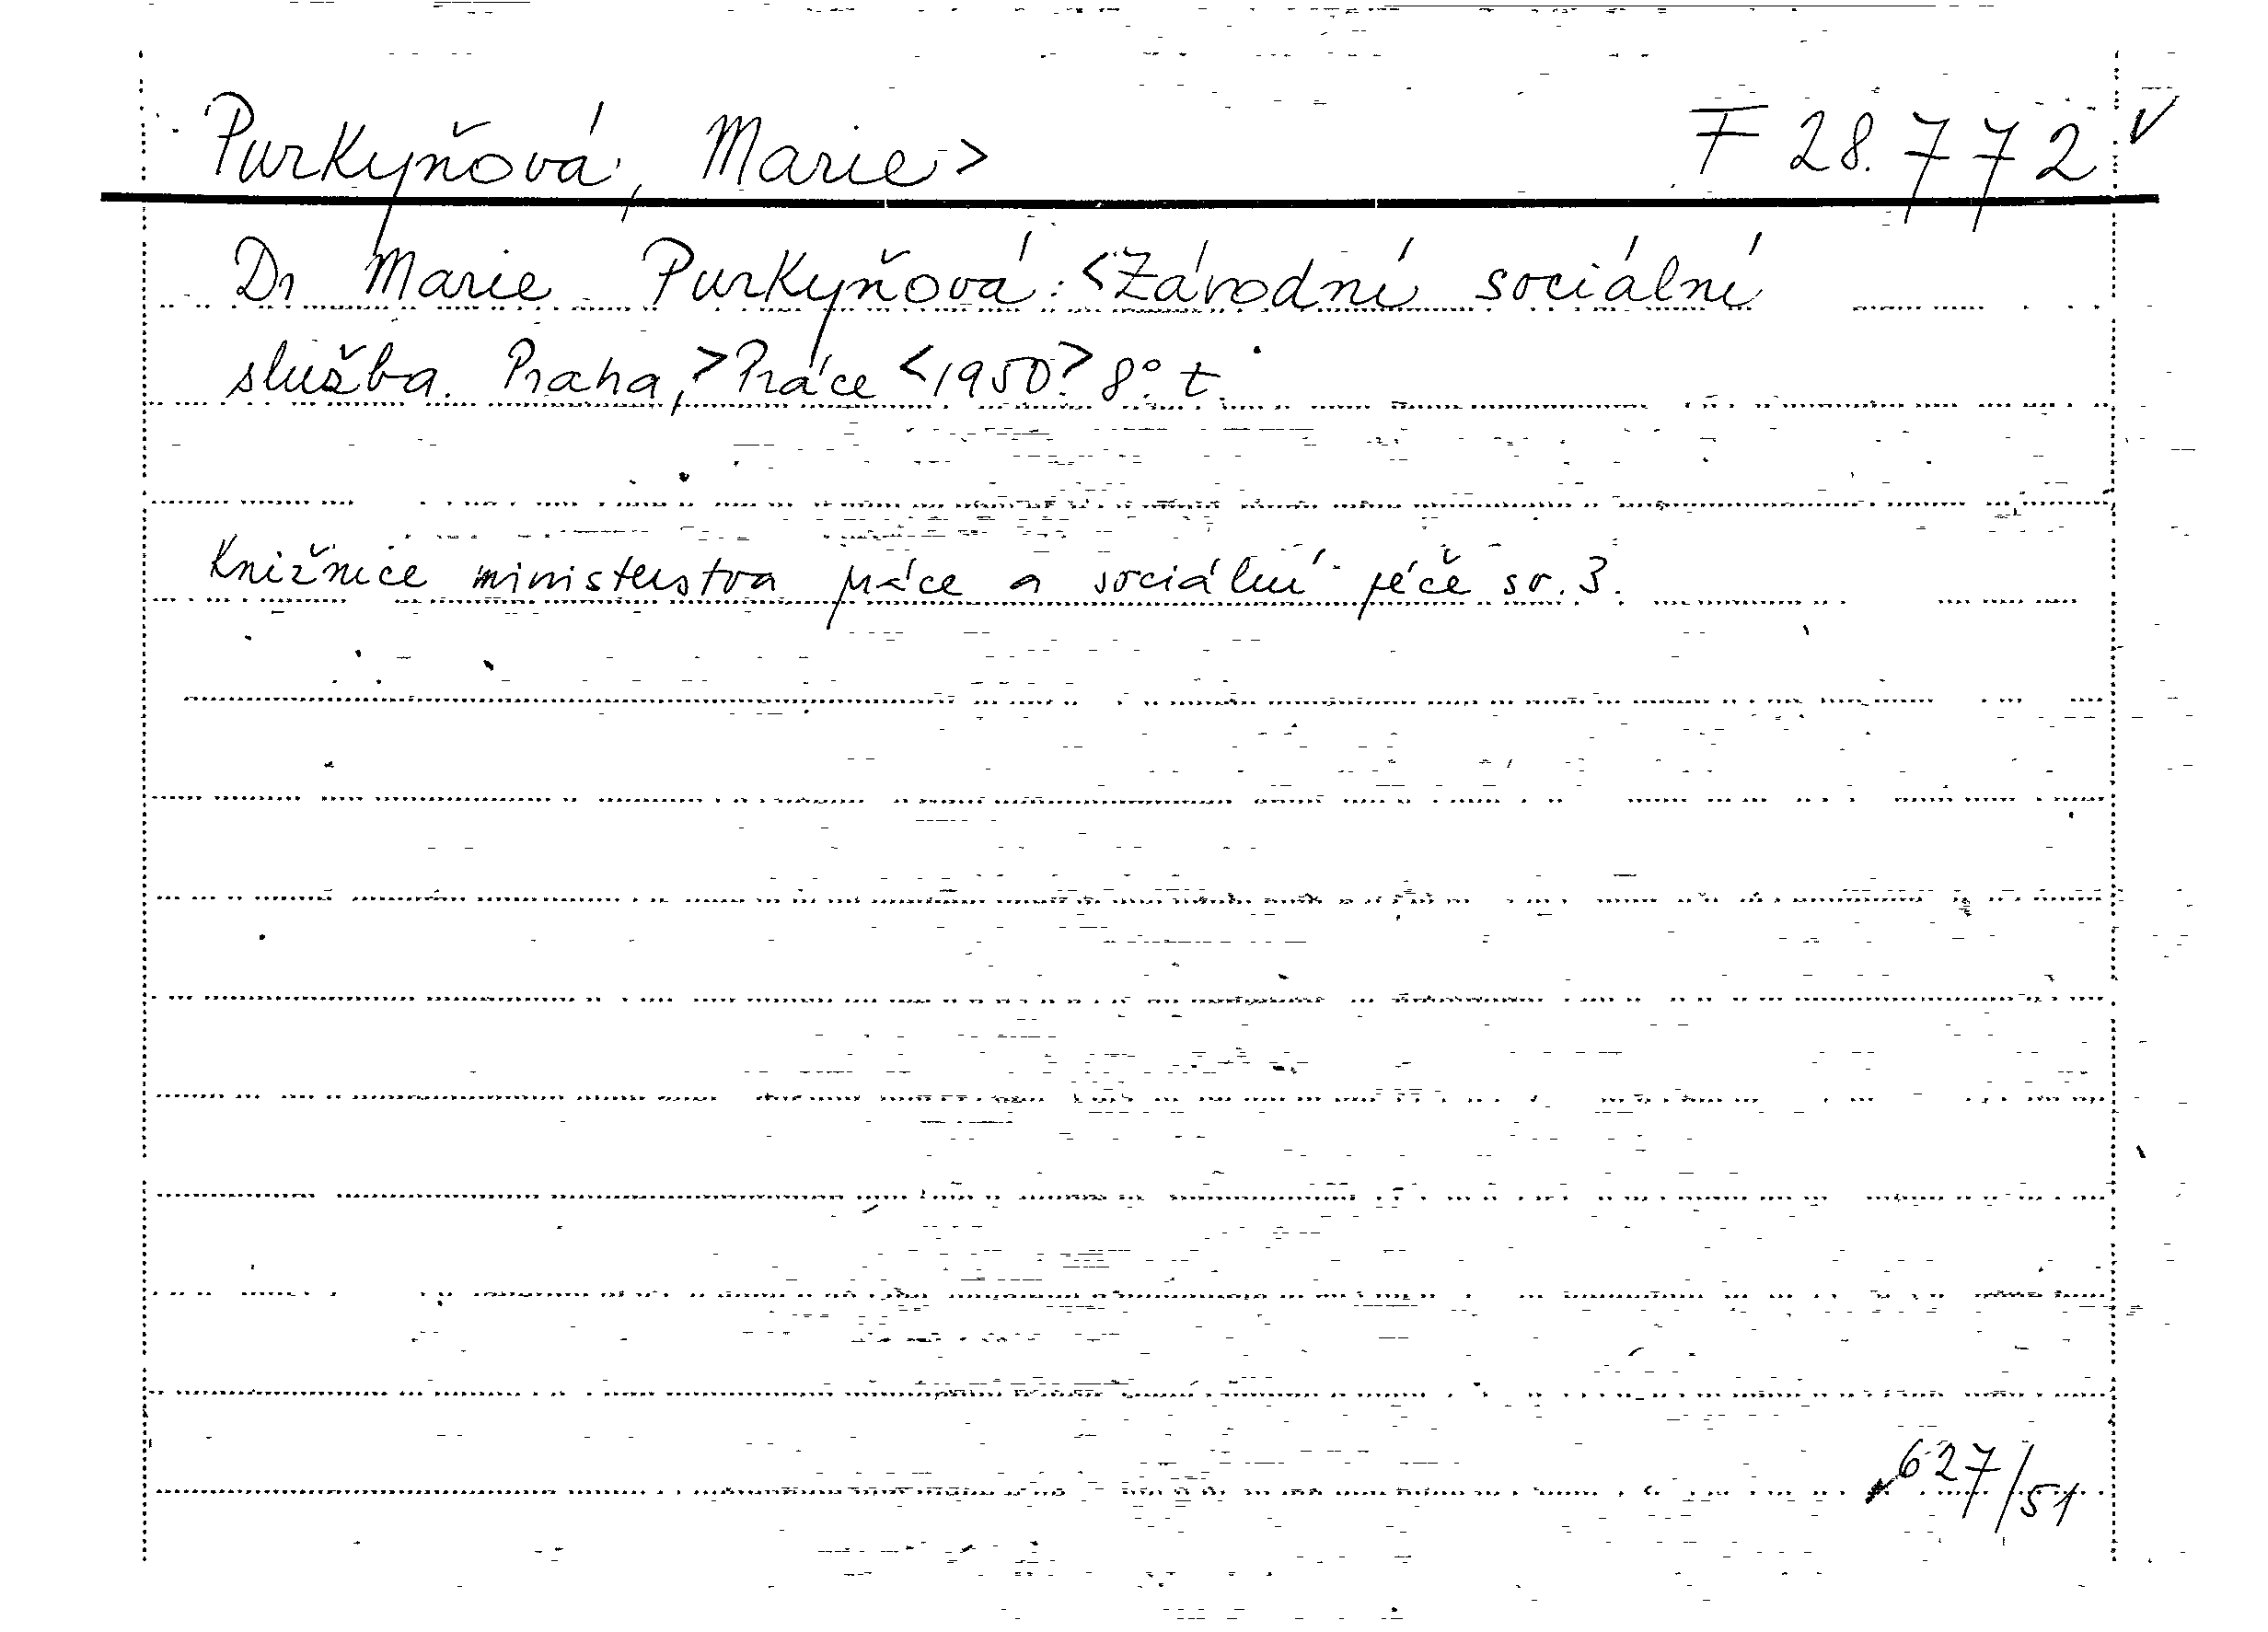 Purkyňová, Marie> F 28.772 V
Dr Marie Purkyňová: <Závodní sociální
služba. Praha,> Práce <1950?> 8° t.
Knižnice ministerstva práce a sociální péče sv. 3.
627/51